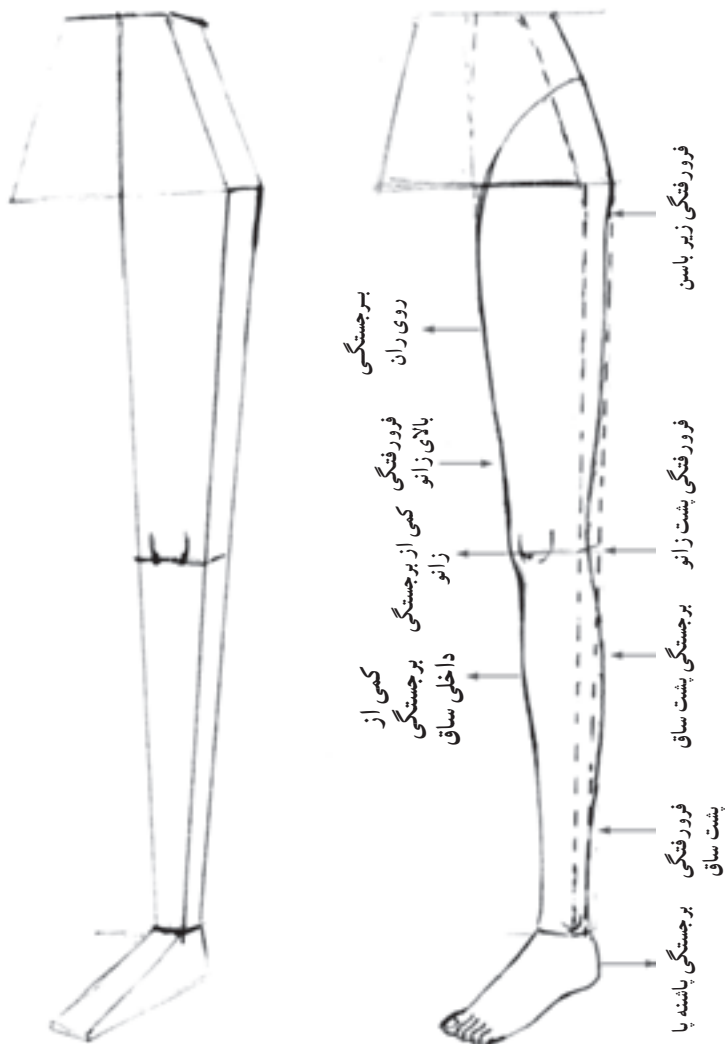 برجستگی
روی ران
فرورفتگی
بالای زانو
کمی از برجستگی
زانو
کمی از
برجستگی
داخلی ساق
فرورفتگی زیر باسن
فرورفتگی پشت زانو
برجستگی پشت ساق
فرورفتگی
پشت ساق
برجستگی پاشنه پا